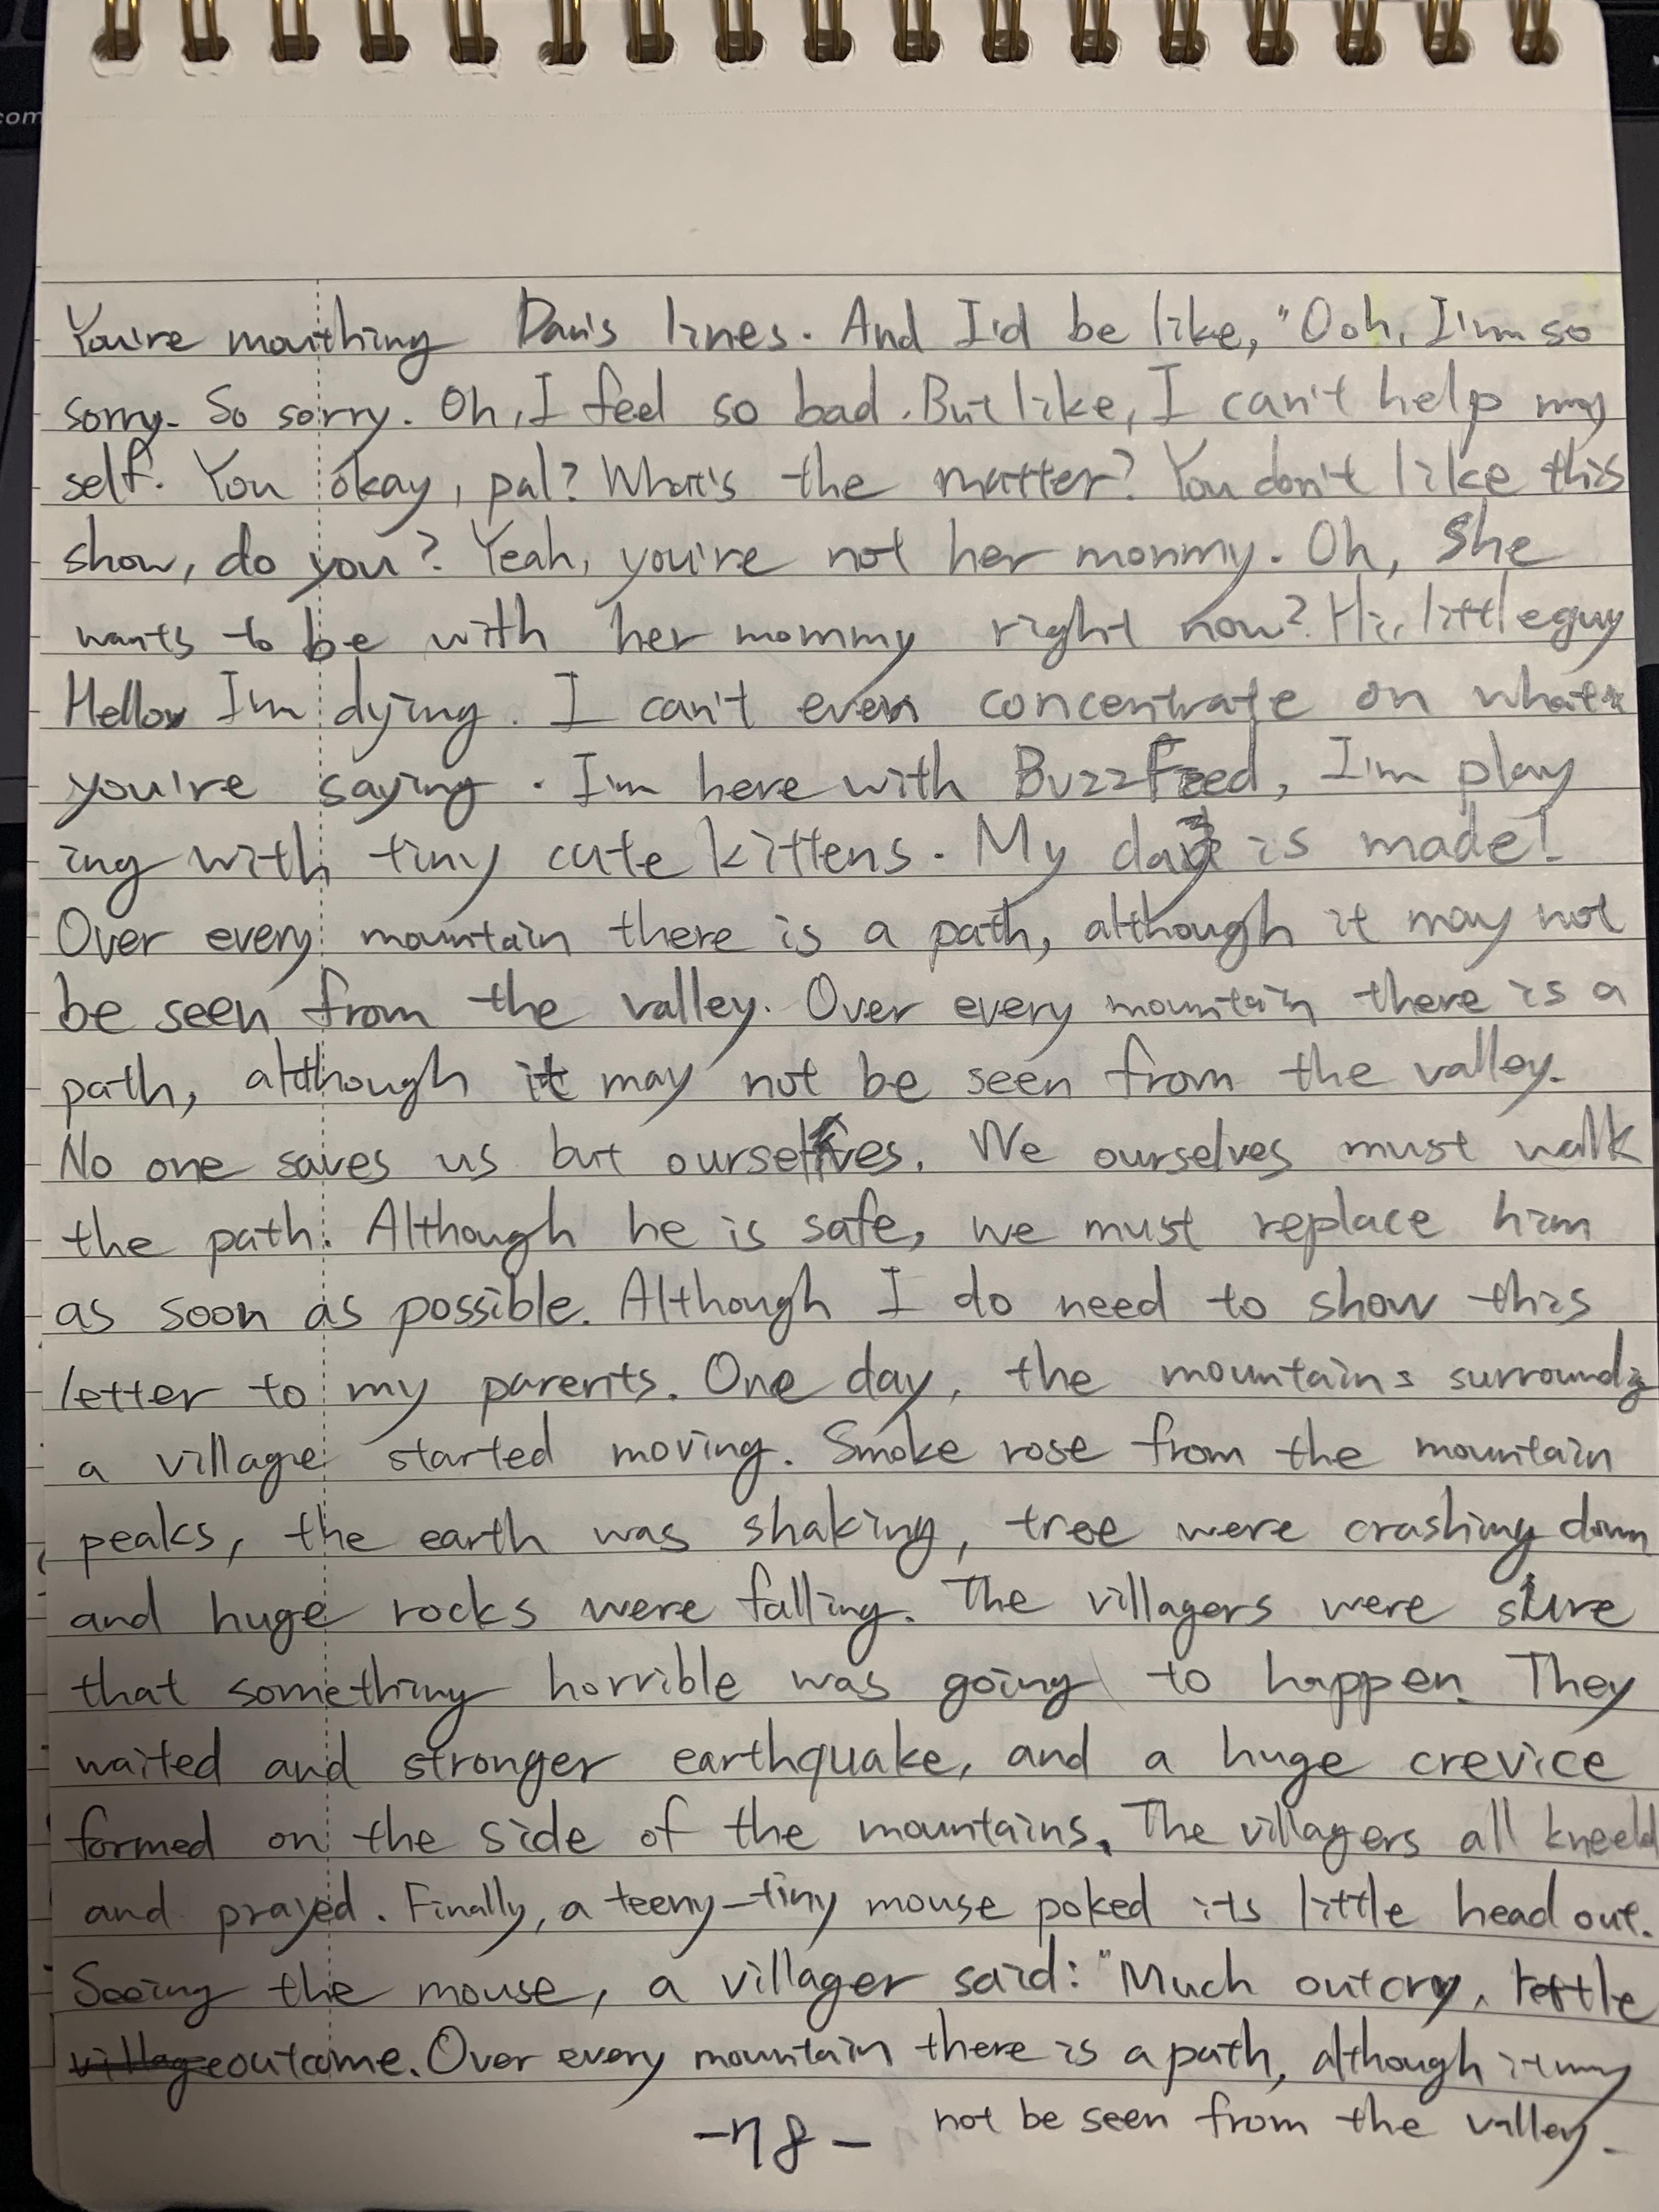 com
You're mouthing Dan's lines. And I'd be like, "Ooh, I'm so
sorry. So sorry. Oh, I feel so bad. But like, I can't help my
self. You okay, pal? What's the matter? You don't like this
show, do you? Yeah, you're not her mommy. Oh, she
wants to be with her mommy right now? Hi, little guy
Hello I'm dying. I can't even concentrate on what
you're saying. I'm here with BuzzFeed, I'm play
ing with tiny cute kittens. My day is made!
Over every mountain there is a path, although it may not
be seen from the valley. Over every mountain there is a
path, although it may not be seen from the valley.
No one saves us but ourselves. We ourselves must walk
the path. Although he is safe, we must replace him
as soon as possible. Although I do need to show this
letter to my parents. One day, the mountains
a village started moving. Smoke rose from the mountain
peaks, the earth was shaking, tree were crashing down
and huge rocks were falling. The villagers were sure
that something horrible was going to happen. They
waited and stronger earthquake, and a huge crevice
formed on the side of the mountains. The villagers all
and prayed. Finally, a teeny-tiny mouse poked its little head out.
Seeing the mouse, a villager said: "Much outcry, little
village outcome. Over every mountain there is a path, although it may
not be seen from the valley.